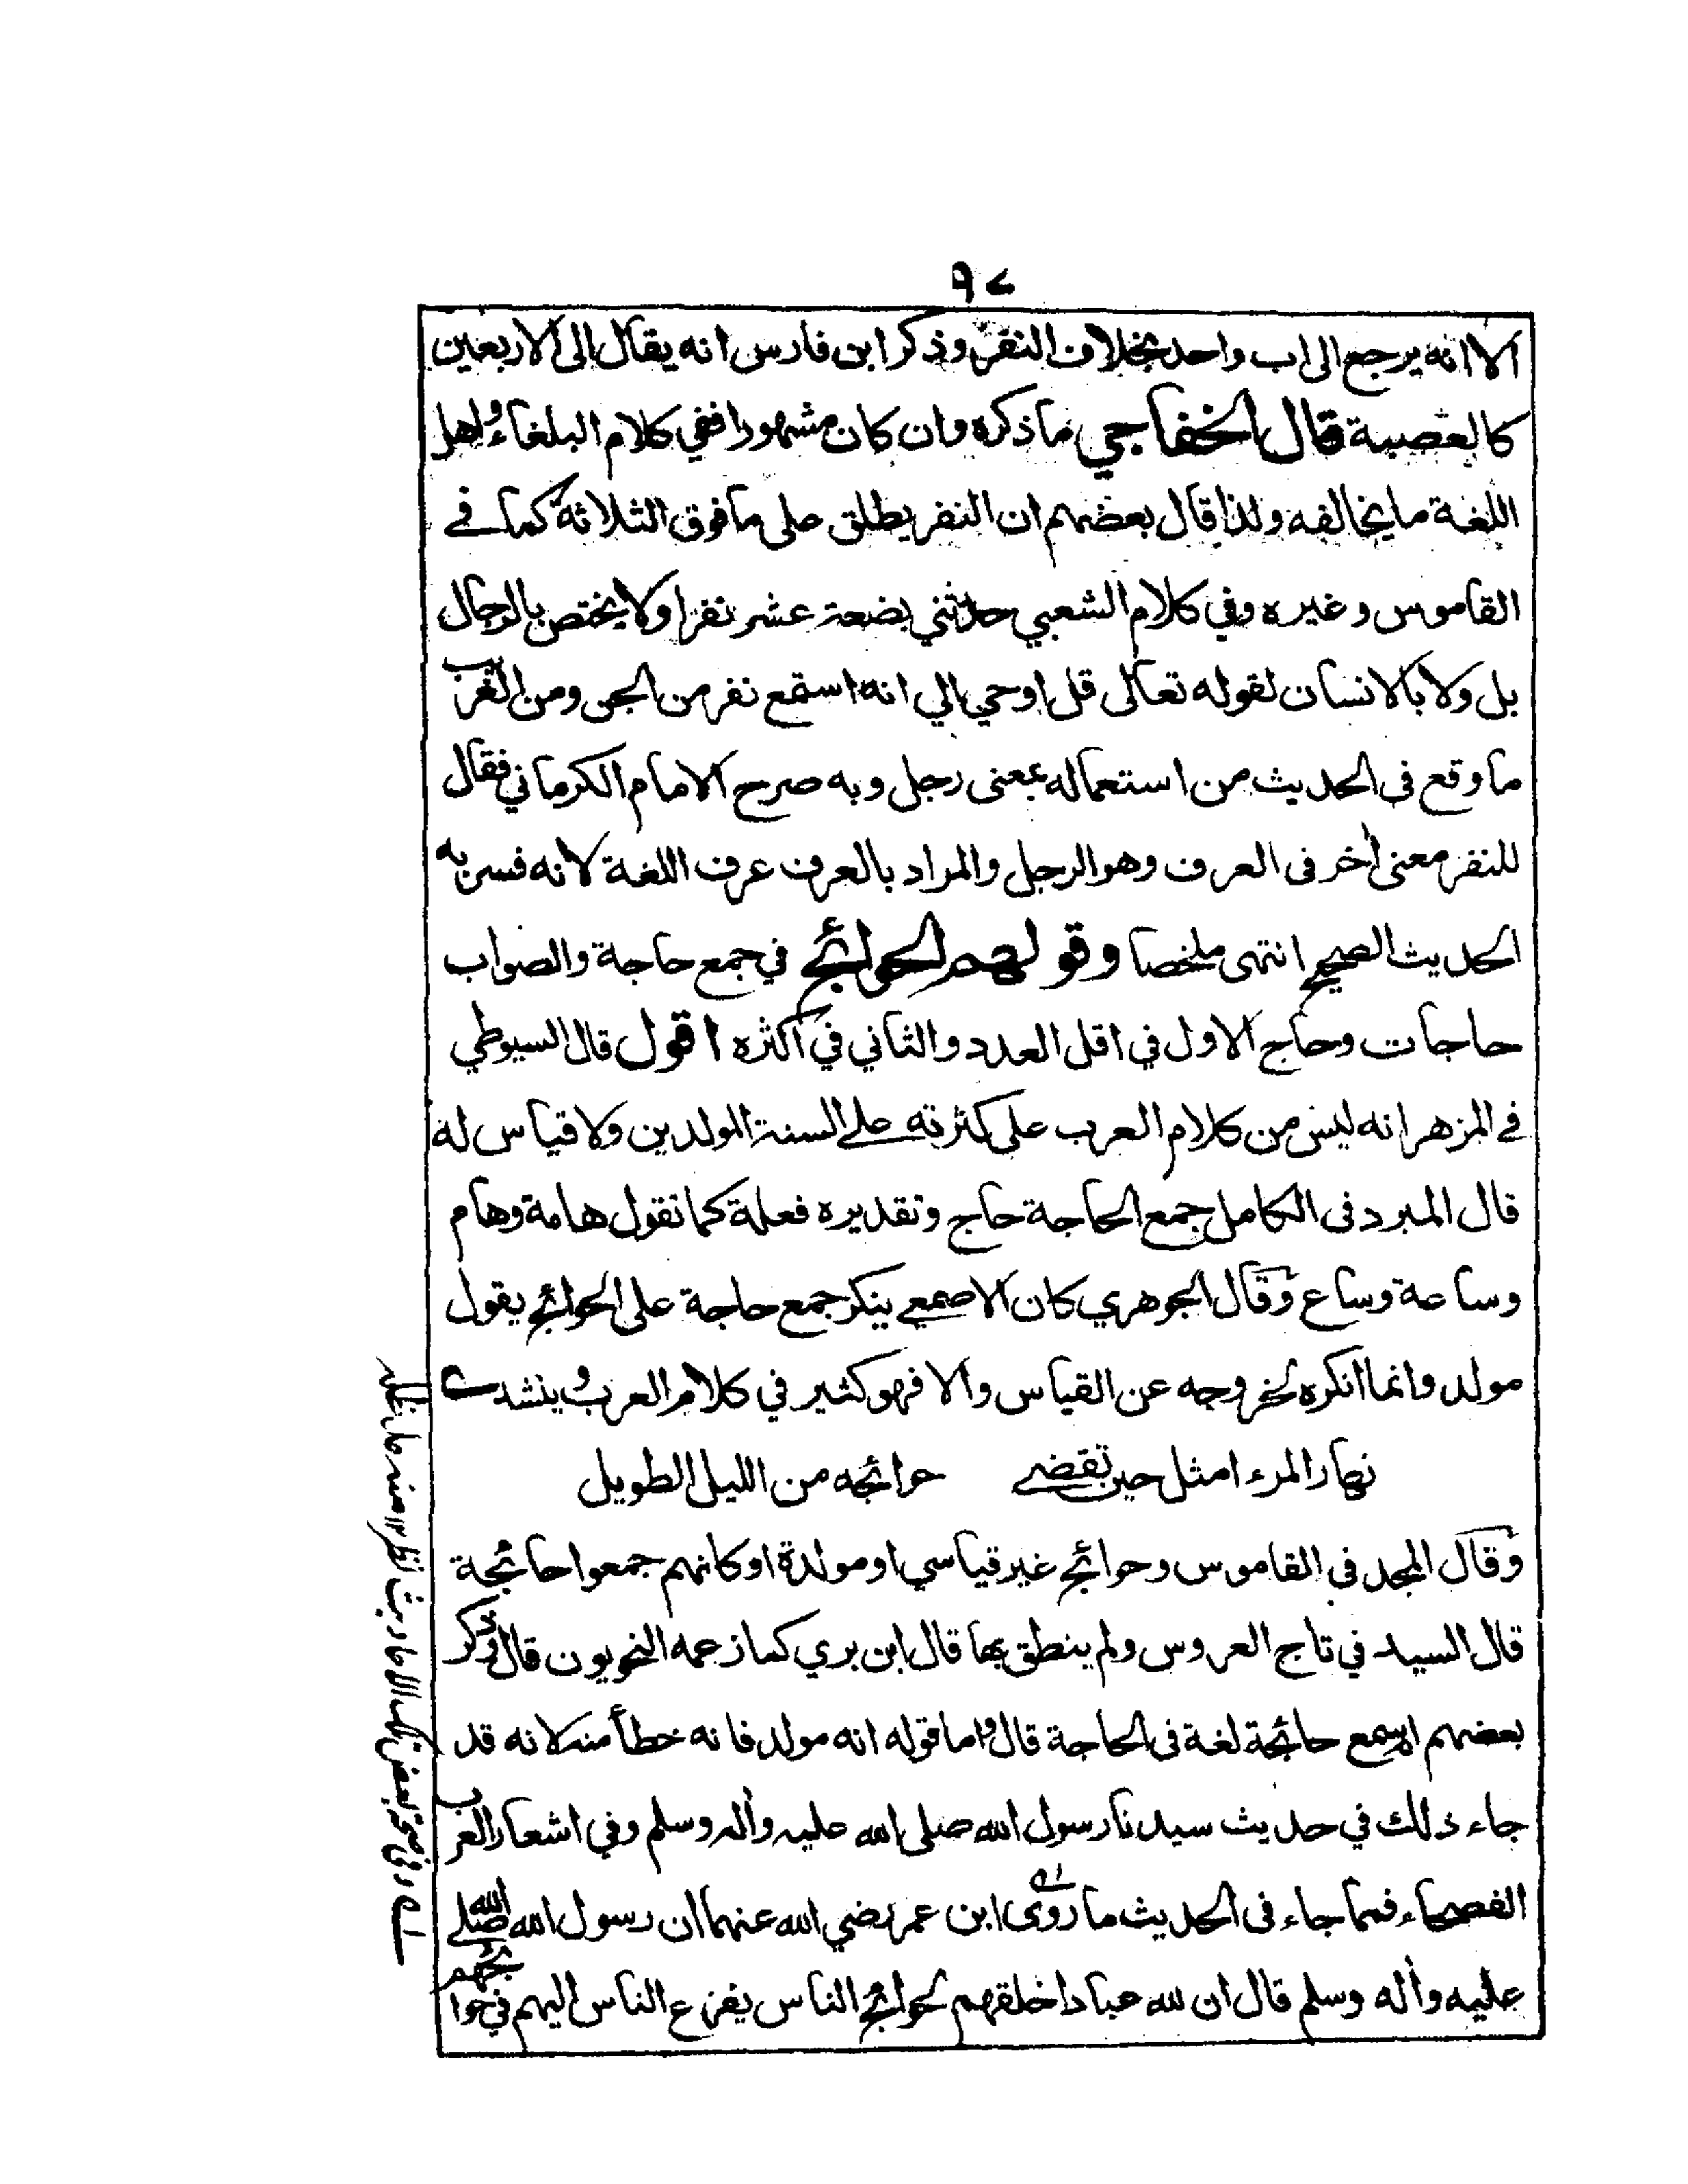 ٩٧
الا انه يرجع الى اب واحد بخلاف النفر وذكر ابن فارس انه يقال الى الاربعين
كالعصبة قال الخفاجي ما ذكره وان كان مشهورا ففي كلام البلغاء واهل
اللغة ما يخالفه ولذا قال بعضهم ان النفر يطلق على ما فوق الثلاثة كما في
القاموس وغيره وفي كلام الشعبي حدثني بضعة عشر نفرا ولا يختص بالرجال
بل ولا بالانسان لقوله تعالى قل اوحي الي انه استمع نفر من الجن ومن الغريب
ما وقع في الحديث من استعماله بمعنى رجل وبه صرح الامام الكرماني فقال
للنفر معنى أخر في العرف وهو الرجل والمراد بالعرف عرف اللغة لانه فسر به
الحديث الصحيح انتهى ملخصا وقولهم الحوائج في جمع حاجة والصواب
حاجات وحاج الاول في اقل العدد والثاني في اكثره اقول قال السيوطي
في المزهر انه ليس من كلام العرب على كثرته على السنة المولدين ولا قياس له
قال المبرد في الكامل جمع الحاجة حاج وتقديره فعلة كما تقول هامة وهام
وساعة وساع وقال الجوهري كان الاصمعي ينكر جمع حاجة على الحوائج يقول
مولد وانما انكره لخروجه عن القياس والا فهو كثير في كلام العرب وينشد
نهار المرء امثل حين تقضى حوائجه من الليل الطويل
وقال المجد في القاموس وحوائج غير قياسي او مولدة او كانهم جمعوا حائجة
قال السيد في تاج العروس ولم ينطق بها قال ابن بري كما زعمه النحويون قال وذكر
بعضهم انه سمع حائجة لغة في الحاجة قال واما قوله انه مولد فانه خطأ منه لانه قد
جاء ذلك في حديث سيدنا رسول الله صلى الله عليه وأله وسلم وفي اشعار العرب
الفصحاء فمما جاء في الحديث ما روى ابن عمر رضي الله عنهما ان رسول الله صلى الله
عليه وأله وسلم قال ان لله عبادا خلقهم لحوائج الناس يفزع الناس اليهم في حوائجهم
بعض تلك الاحاديث نظر ١٢ منه مد ظله